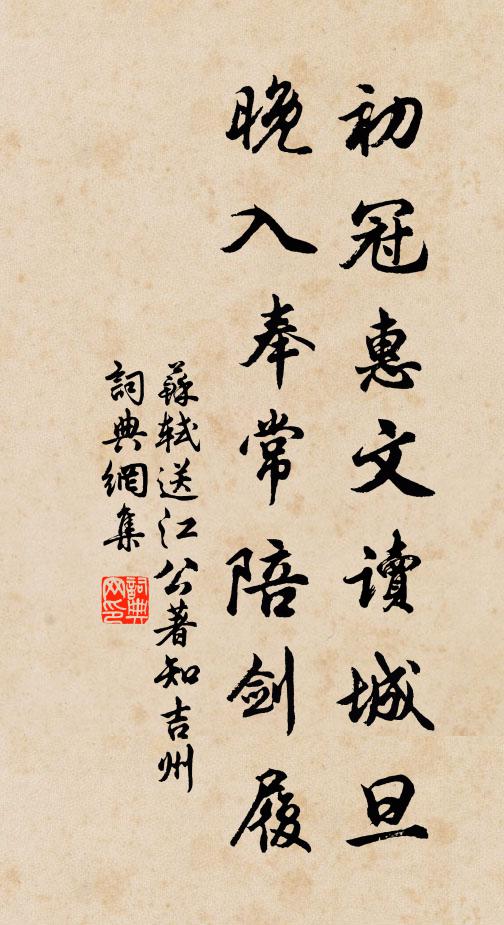 初冠惠文讀城旦
晚入奉常陪劍履
蘇軾送江公著知吉州
詞典網集
詞典網印